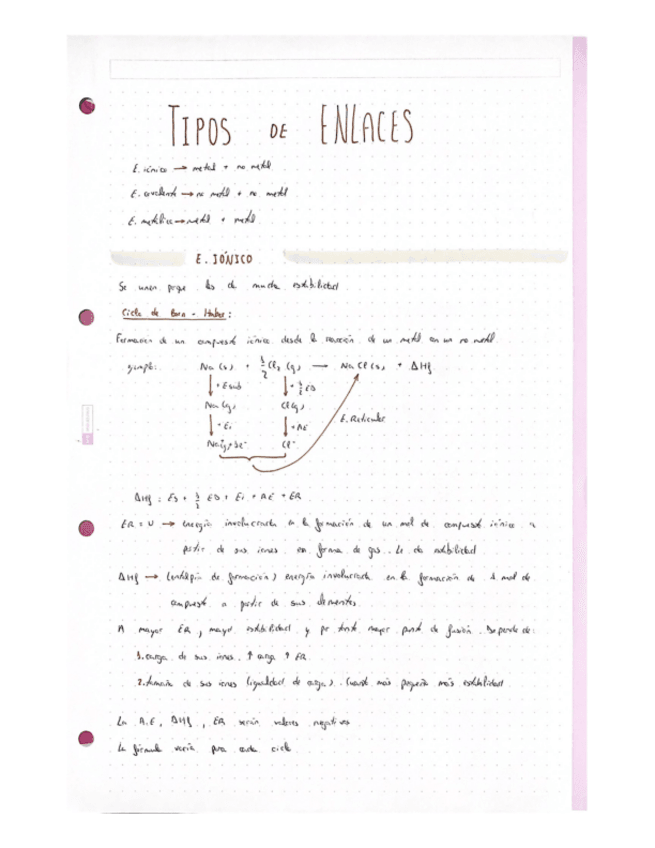 TIPOS DE ENLACES
E. iónico → metal + no metal
E. covalente → no metal + no metal
E. metálico → metal + metal
E. IÓNICO
Se unen porque les da mucha estabilidad
Ciclo de Born - Haber:
Formación de un compuesto iónico desde la reacción de un metal con un no metal.
ejemplo: Na (s) + 1/2 Cl₂ (g) → Na Cl (s) + ΔHf
+ Esub + 1/2 ED
Na (g) Cl (g)
+ Ei + AE E. Reticular
Cl⁻
ΔHf = Es + 1/2 ED + Ei + AE + ER
ER = U → energía involucrada en la formación de un mol de compuesto iónico a
partir de sus iones en forma de gas. Le da estabilidad
ΔHf → (entalpía de formación) energía involucrada en la formación de 1 mol de
compuesto a partir de sus elementos.
A mayor ER, mayor estabilidad y por tanto mayor punto de fusión. Depende de:
1. carga de sus iones. ↑ carga ↑ ER
2. tamaño de sus iones (igualdad de carga). Cuanto más pequeño más estabilidad
La A.E, ΔHf, ER serán valores negativos
La fórmula varía para cada ciclo